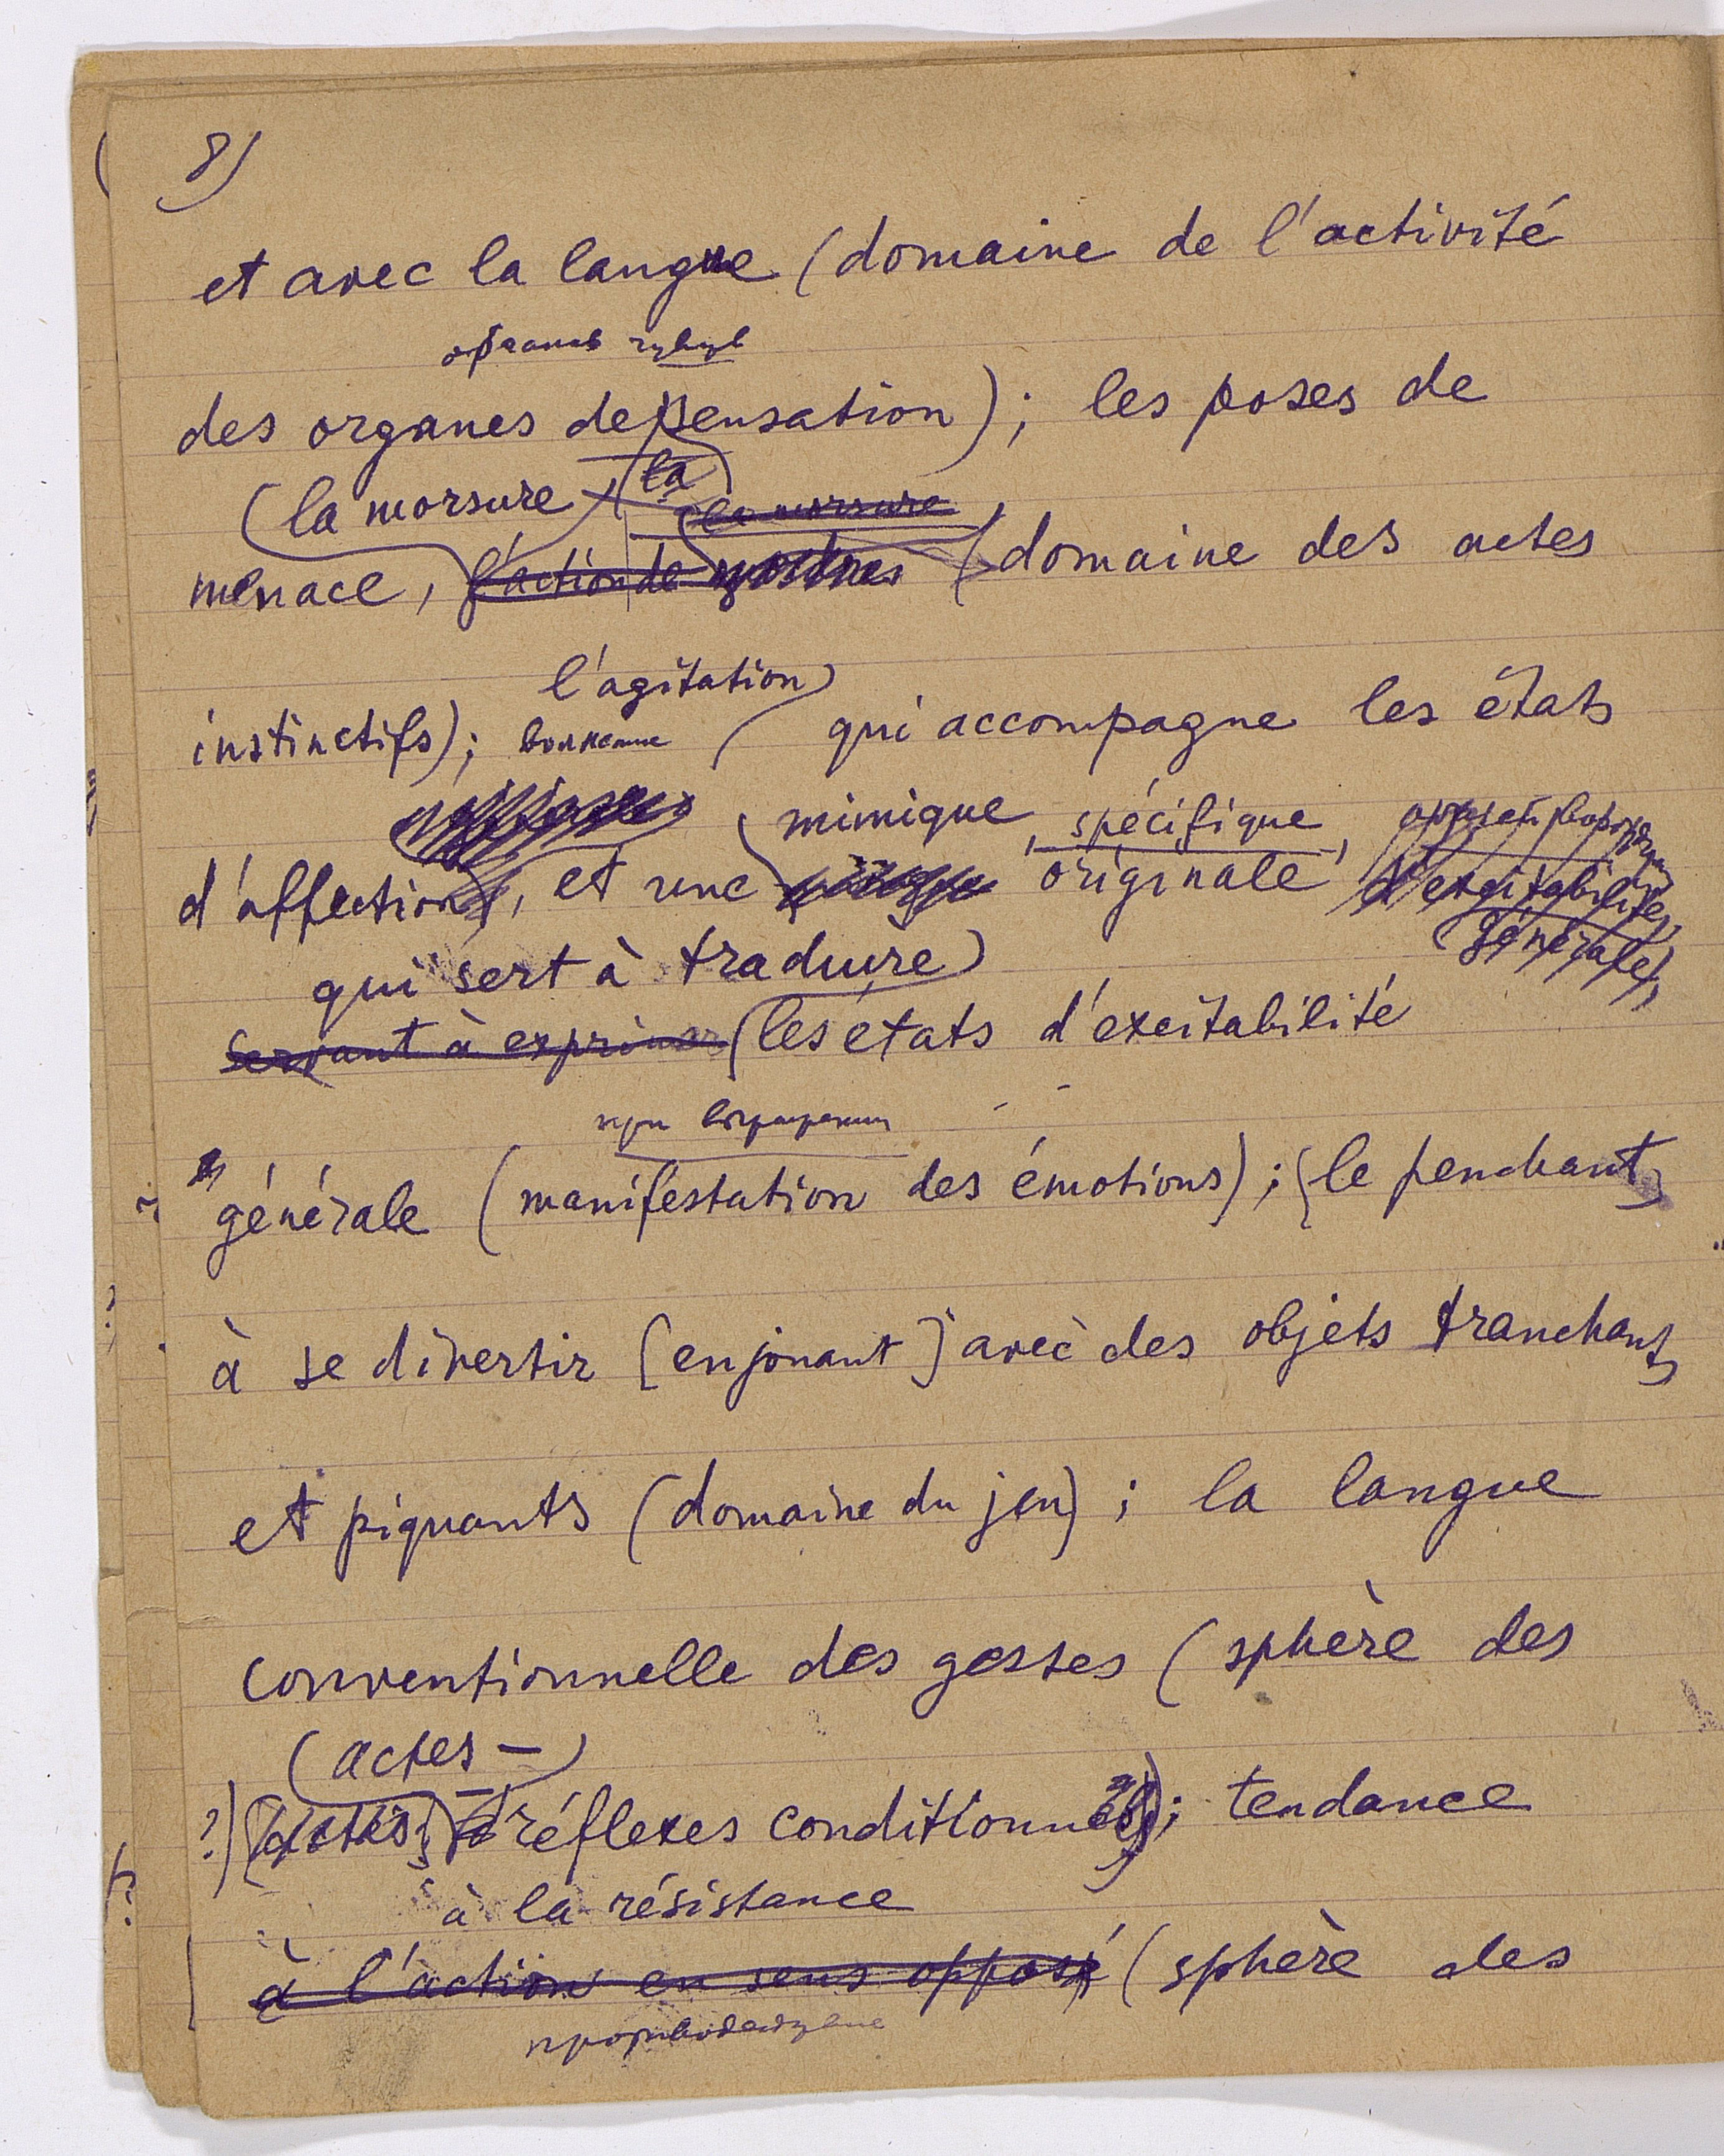 8)
et avec la langue (domaine de l'activité
органов чувств
des organes de sensation); les poses de
(la morsure) la la morsure
menace, l'action de mordre (domaine des actes
l'agitation
instinctifs); волнение qui accompagne les états
mimique, spécifique,
d'affection, et une originale d'excitabilité
générale
qui sert à traduire
servant à exprimer les états d'excitabilité
при выражении
générale (manifestation des émotions); (le penchant)
à se divertir [en jouant] avec des objets tranchants
et piquants (domaine du jeu); la langue
conventionnelle des gestes (sphère des
(actes –)
?) [actes] réflexes conditionnés); tendance
à la résistance
à l'action en sens opposé (sphère des
противодействие